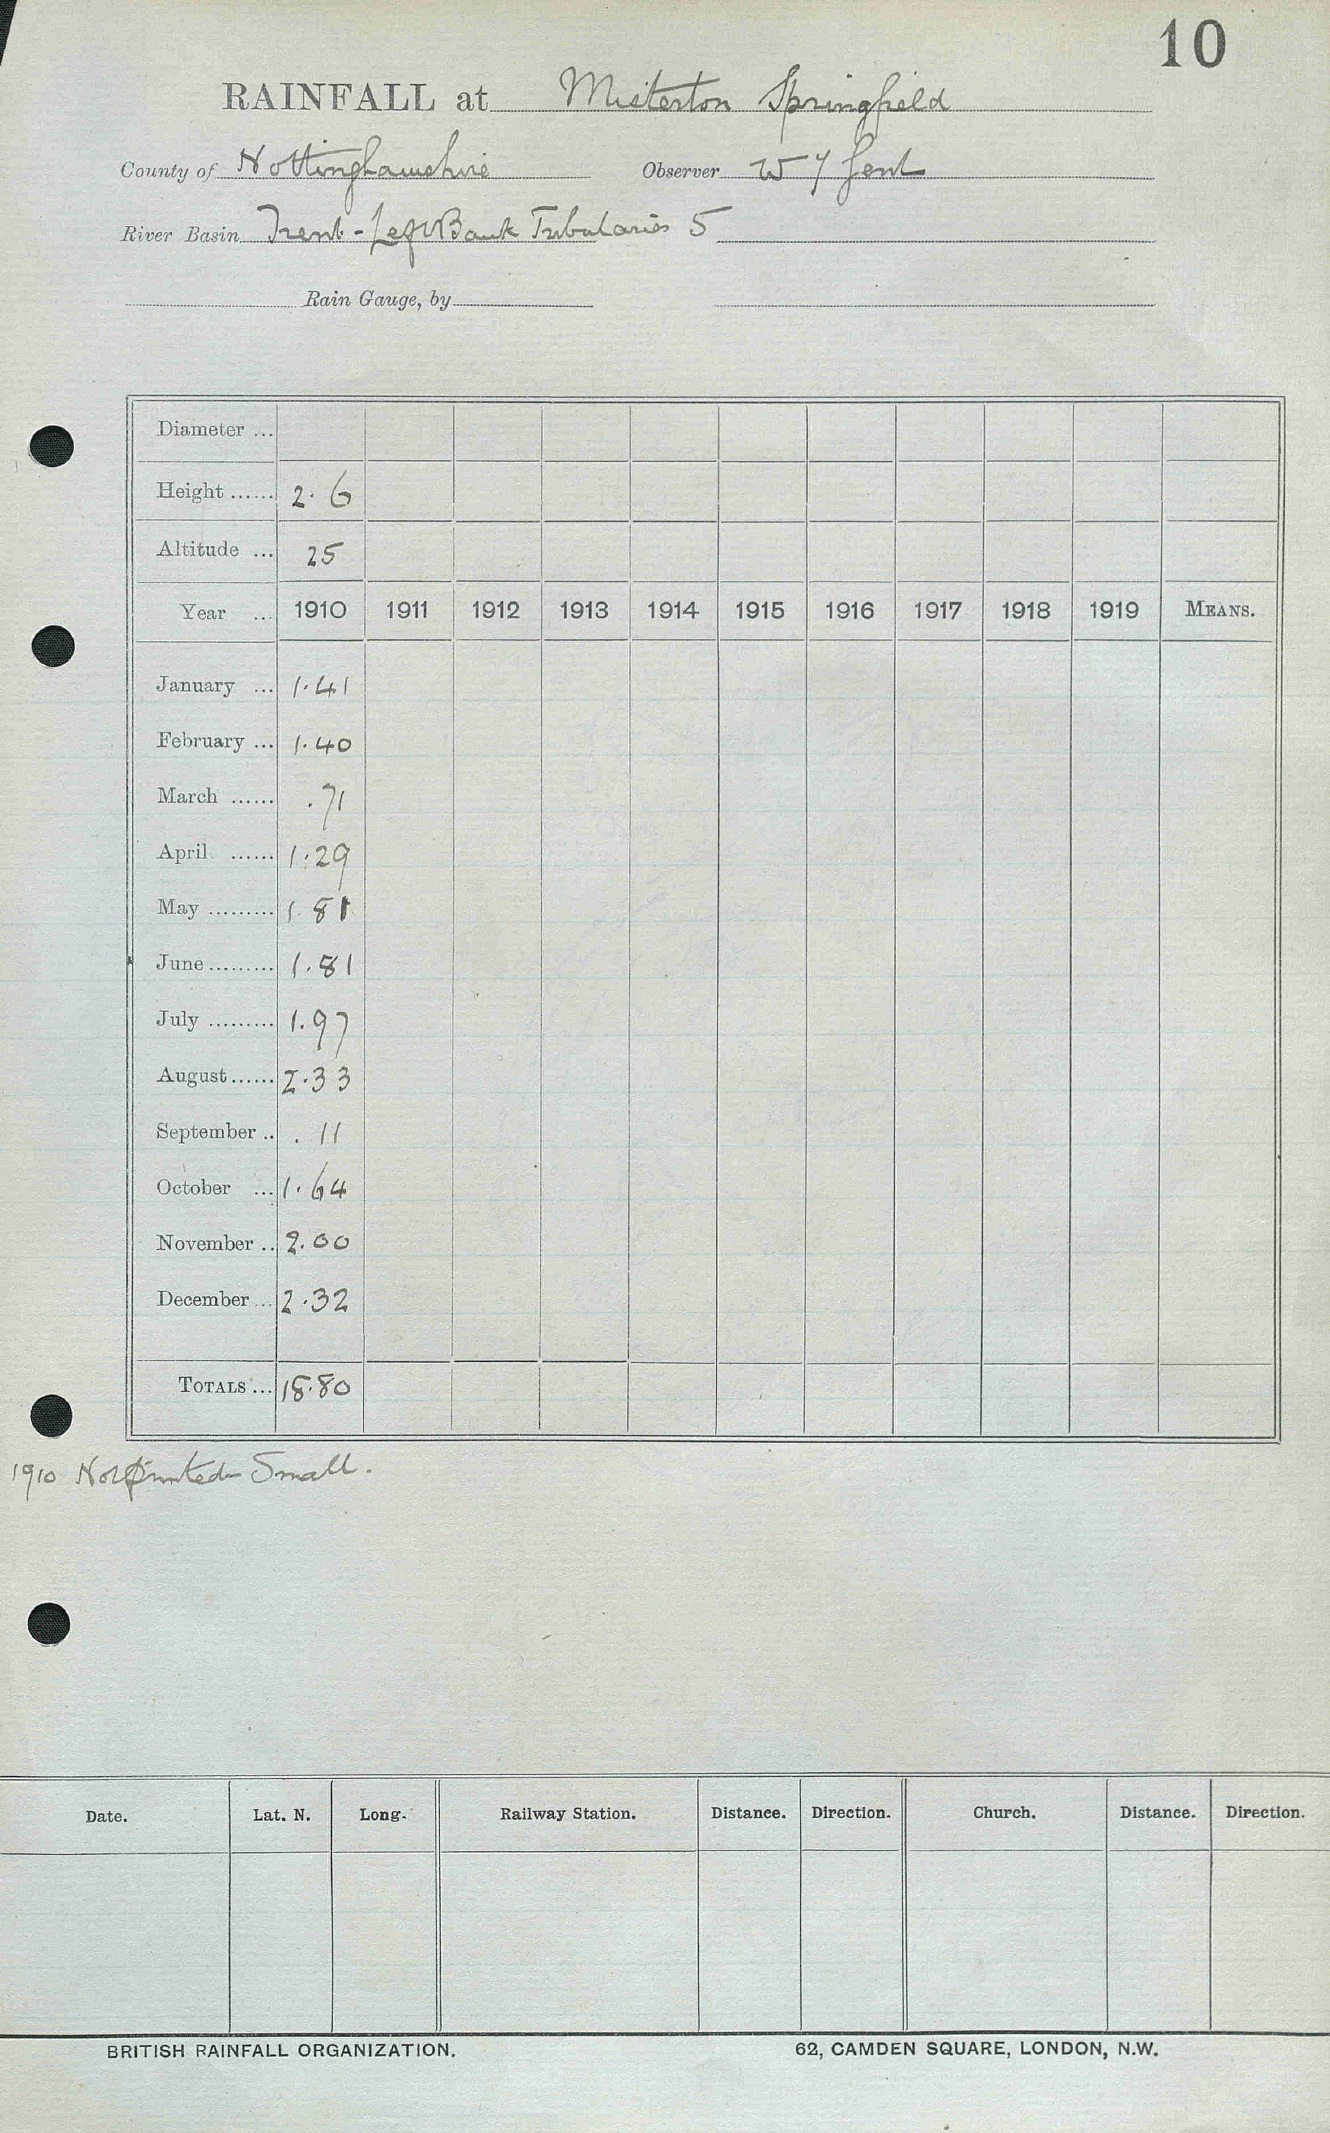 10
RAINFALL at Misterton Springfield
County of Nottinghamshire Observer W J Gent
River Basin Trent - Left Bank Tributaries 5
Rain Gauge, by
Diameter ...
Height ...... 2. 6
Altitude ... 25
Year ... 1910 1911 1912 1913 1914 1915 1916 1917 1918 1919 MEANS.
January ... 1.41
February ... 1.40
March ...... .71
April ...... 1.29
May ......... 1.81
June ......... 1.81
July ......... 1.97
August ...... 2.33
September .. .11
October ... 1.64
November .. 2.00
December ... 2.32
TOTALS ... 18.80
1910 Not printed Small.
Date. Lat. N. Long. Railway Station. Distance. Direction. Church. Distance. Direction.
BRITISH RAINFALL ORGANIZATION. 62, CAMDEN SQUARE, LONDON, N.W.